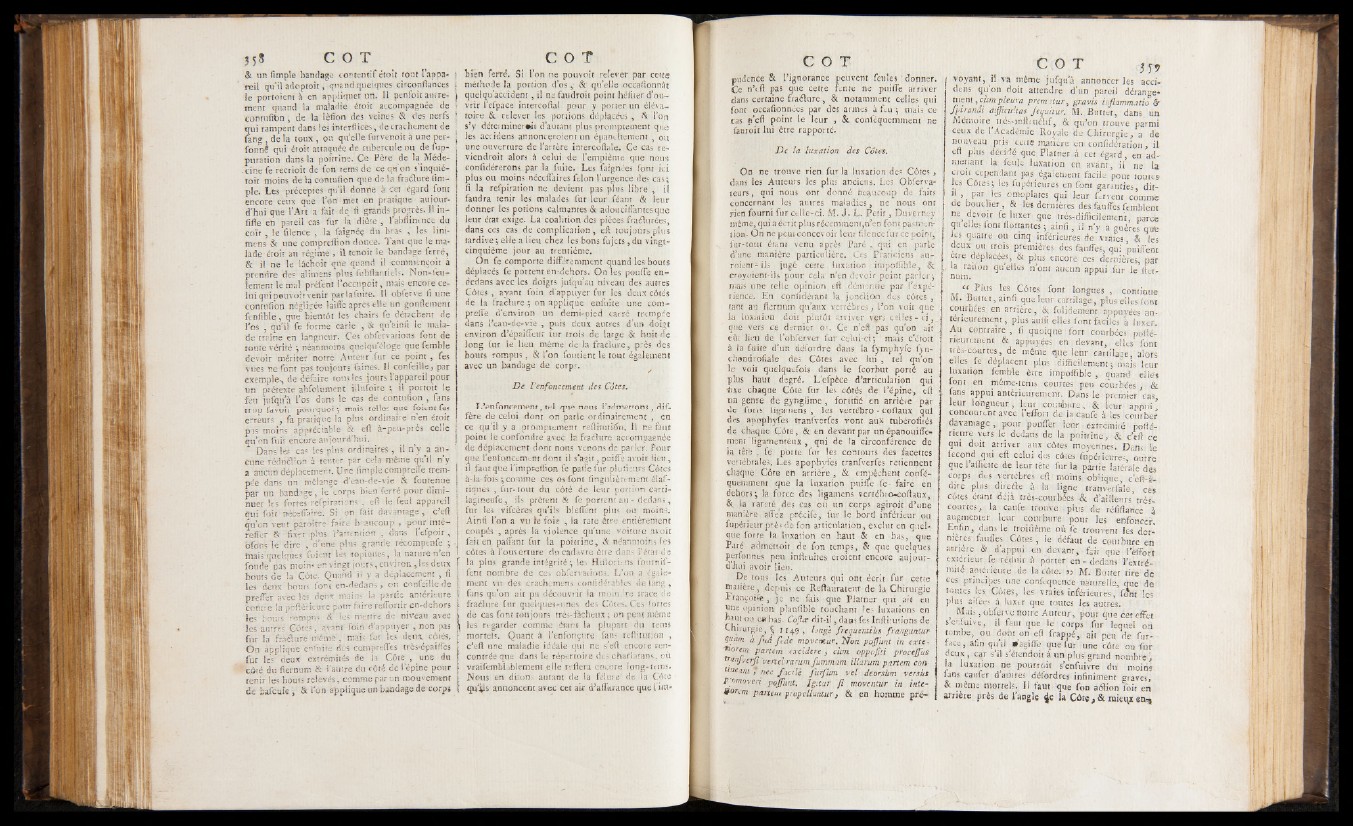 358 C O T
& un simple bandage contentif étoit tout l'appa-
reil qu'il adoptoit, quand quelques circonstances
le portoient à en appliquer un. Il pensoit autre-
ment quand la maladie étoit accompagnée de
contusion, de la lésion des veines & des nerfs
qui rampent dans les interstices, de crachement de
sang, de la toux, ou qu'elle survenoit à une per-
sonne qui étoit attaquée de tubercule ou de sup-
puration dans la poitrine. Ce Père de la Méde-
cine se recrioit de son tems de ce qu'on s'inquié-
toit moins de la contusion que de la fracture sim-
ple. Les préceptes qu'il donne à cet égard sont
encore ceux que l'on met en pratique aujour-
d'hui que l'Art a fait de si grands progrès. Il in-
siste en pareil cas sur la diète, l'abstinence du
coït, le silence, la saignée du bras, les lini-
mens & une compression douce. Tant que le ma-
lade étoit au régime, il tenoit le bandage serré,
& il ne le lâchoit que quand il commençoit à
prendre des alimens plus substantiels. Non-seu-
lement le mal présent l'occupoit, mais encore ce-
lui qui pouvoit venir par la suite. Il observe si une
contusion négligée laisse après elle un gonflement
sensible, que bientôt les chairs se détachent de
l'os, qu'il se forme carie, & qu'ainsi le mala-
de traîne en langueur. Ces observations sont de
toute vérité; néanmoins quelqu'éloge que semble
devoir mériter notre Auteur sur ce point, ses
vues ne sont pas toujours saines. Il conseille, par
exemple, de défaire tous les jours l'appareil pour
un prétexte absolument illusoire; il portoit le
feu jusqu'à l'os dans le cas de contusion, sans
trop savoir pourquoi; mais telles que soient ses
erreurs, sa pratique la plus ordinaire n'en étoit
pas moins appréciable & est à-peu-près celle
qu'on suit encore aujourd'hui.
Dans les cas les plus ordinaires, il n'y a au-
cune réduction à tenter par cela même qu'il n'y
a aucun déplacement. Une simple compresse trem-
pée dans un mélange d'eau-de-vie & soutenue
par un bandage, le corps bien serré pour dimi-
nuer les fortes respirations, est le seul appareil
qui soit nécessaire. Si on fait davantage, c'est
qu'on veut paroître faire beaucoup, pour inté-
resser & fixer plus l'attention, dans l'espoir,
osons le dire, d'une plus grande récompense;
mais quelques soient les topiques, la nature n'en
soude pas moins en vingt jours, environ, les deux
bouts de la Côte. Quand il y a déplacement, si
les deux bouts sont en-dedans, on conseille de
presser avec les deux mains la partie antérieure
contre la postérieure pour faire ressortir en-dehors
les bouts rompus & les mettre de niveau avec
les autres Côtes, ayant soin d'appuyer, non pas
sur la fracture même, mais sur les deux côtés.
On applique ensuite des compresses très-épaisses
sur les deux extrémités de la Côte, une du
côté du sternum & l'autre du côté de l'épine pour
tenir les bouts relevés, comme par un mouvement
de bascule, & l'on applique un bandage de corps
C O T
bien serré. Si l'on ne pouvoit relever par cette
méthode la portion d'os, & qu'elle occasionnât
quelqu'accident, il ne faudroit point hésiter d'ou-
vrir l'espace intercostal pour y porter un éléva-
toire & relever les portions déplacées, & l'on
s'y détermineroit d'autant plus promptement que
les accidens annonceroient un épanchement, ou
une ouverture de l'artère intercostale. Ce cas re-
viendroit alors à celui de l'empième que nous
considérerons par la suite. Les saignées sont ici
plus ou moins nécessaires selon l'urgence des cas;
si la respiration ne devient pas plus libre, il
faudra tenir les malades sur leur séant & leur
donner les potions calmantes & adoucissantes que
leur état exige. La coalition des pièces fracturées,
dans ces cas de complication, est toujours plus
tardive; elle a lieu chez les bons sujets, du vingt-
cinquième jour au trentième.
On se comporte différemment quand les bouts
déplacés se portent en-dehors. On les pousse en-
dedans avec les doigts jusqu'au niveau des autres
Côtes, ayant soin d'appuyer sur les deux côtés
de la fracture; on applique ensuite une com-
presse d'environ un demi-pied carré trempée
dans l'eau-de-vie, puis deux autres d'un doigt
environ d'épaisseur sur trois de large & huit de
long sur le lieu même de la fracture, près des
bouts rompus, & l'on soutient le tout également
avec un bandage de corps.
De l'enfoncement des Côtes.
L'enfoncement, tel que nous l'admettons, dif-
fère de celui dont on parle ordinairement, en
ce qu'il y a promptement restitution. Il ne faut
point le confondre avec la fracture accompagnée
de déplacement dont nous venons de parler. Pour
que l'enfoncement dont il s'agit, puisse avoir lieu,
il faut que l'impression se passe sur plusieurs Côtes
à-la-fois; comme ces os sont singulièrement élas-
tiques, sur-tout du côté de leur portion carti-
lagineuse, ils prêtent & se portent au-dedans,
sur les viscères qu'ils blessent plus ou moins.
Ainsi l'on a vu le foie, la rate être entièrement
coupés, après la violence qu'une voiture avoit
fait en passant sur la poitrine, & néanmoins les
côtes à l'ouverture du cadavre être dans l'état de
la plus grande intégrité; les Historiens fournis-
sent nombre de ces observations. L'on a égale-
ment vu des crachemens considérables de sang,
sans qu'on ait pu découvrir la moindre trace de
fracture sur quelques-unes des Côtes. Ces sortes
de cas sont toujours très-fâcheux; on peut même
les regarder comme étant la plupart du tems
mortels. Quant à l'enfonçure sans restitution,
c'est une maladie idéale qui ne s'est encore ren-
contrée que dans le répertoire des charlatans, ou
vraisemblablement elle restera encore long-tems.
Nous en dirons autant de la fêlure de la Côte
qu'ils annoncent avec cet air d'assurance que l'im-
C O T
pudence & l'ignorance peuvent seules donner.
Ce n'est pas que cette fente ne puisse arriver
dans certaine fracture, & notamment celles qui
sont occasionnées par des armes à feu; mais ce
cas n'est point le leur, & conséquemment ne
sauroit lui être rapporté.
De la luxation des Côtes.
On ne trouve rien sur la luxation des Côtes,
dans les Auteurs les plus anciens. Les Observa-
teurs, qui nous ont donné beaucoup de faits
concernant les autres maladies, ne nous ont
rien fourni sur celle-ci. M. J. L. Petit, Duverney
même, qui a écrit plus récemment, n'en font pas men-
tion. On ne peut concevoir leur silence sur ce point,
sur-tout étant venu après Paré, qui en parle
d'une manière particulière. Ces Praticiens au-
roient-ils jugé cette luxation impossible, &
croyoient-ils pour cela n'en devoir point parler;
mais une telle opinion est démentie par l'expé-
rience. En considérant la jonction des côtes,
tant au sternum qu'aux vertèbres, l'on voit que
la luxation doit plutôt arriver vers celles-ci,
que vers ce dernier os. Ce n'est pas qu'on ait
eu lieu de l'observer sur celui-ci; mais c'étoit
à la suite d'un désordre dans la symphyse syn-
chondrosiale des Côtes avec lui, tel qu'on
le voit quelquefois dans le scorbut porté au
plus haut degré. L'espèce d'articulation qui
fixe chaque Côte sur les côtés de l'épine, est
un genre de gynglime, fortifié en arrière par
de forts ligamens, les vertébro-costaux qui
des apophyses transverses vont aux tubérosités
de chaque Côte, & en devant par un épanouisse-
ment ligamenteux, qui de la circonférence de
la tête, se porte sur les contours des facettes
vertébrales. Les apophyses transverses retiennent
chaque Côte en arrière, & empêchent consé-
quemment que la luxation puisse se faire en
dehors; la force des ligamens vertébro-costaux,
& la rareté des cas où un corps agiroit d'une
manière assez précise, sur le bord inférieur ou
supérieur près de son articulation, exclut en quel-
que sorte la luxation en haut & en bas, que
Paré admettoit de son temps, & que quelques
personnes peu instruites croient encore aujour-
d'hui avoir lieu.
De tous les Auteurs qui ont écrit sur cette
matière, depuis ce Restaurateur de la Chirurgie
Françoise, je ne sais que Platner qui ait eu
une opinion plausible touchant les luxations en
haut ou en bas. Costæ dit-il, dans ses Institutions de
Chirurgie, § 1149, longè frequentiùs franguntur
quàm à suâ sede moventur. Non possunt in exte-
riorem partem excidere, cùm oppositi processus
transversi vertebrarum summam illarum partem con-
tineant; nec facilè sursùm vel deorsùm versùs
promoveri possunt. Igitur si moventur in inte-
riorem partem propelluntur, & en homme pré-
C O T 359
voyant, il va même jusqu'à annoncer les acci-
dens qu'on doit attendre d'un pareil dérange-
ment, cùm pleura premitur, gravis inflammatio &
spirandi difficultas sequitur. M. Buttet, dans un
Mémoire très-instructif, & qu'on trouve parmi
ceux de l'Académie Royale de Chirurgie, a de
nouveau pris cette manière en considération, il
est plus décidé que Platner à cet égard, en ad-
mettant la seule luxation en avant, il ne la
croit cependant pas également facile pour toutes
les Côtes; les supérieures en sont garanties, dit-
il, par les omoplates qui leur servent comme
de bouclier, & les dernières des fausses semblent
ne devoir se luxer que très-difficilement, parce
qu'elles sont flottantes; ainsi, il n'y a guères que
les quatre ou cinq inférieures de vraies, & les
deux ou trois premières des fausses, qui puissent
être déplacées, & plus encore ces dernières, par
la raison qu'elles n'ont aucun appui sur le ster-
num.
« Plus les Côtes sont longues, continue
M. Buttet, ainsi que leur cartilage, plus elles sont
courbées en arrière, & solidement appuyées an-
térieurement, plus aussi elles sont faciles à luxer.
Au contraire, si quoique fort courbées posté-
rieurement & appuyées en devant, elles sont
très-courtes, de même que leur cartilage, alors
elles se déplacent plus difficilement; mais leur
luxation semble être impossible, quand elles
sont en même-tems courtes peu courbées, &
sans appui antérieurement. Dans le premier cas,
leur longueur, leur courbure, & leur appui,
concourent avec l'effort de la cause à les courber
davantage, pour pousser leur extrémité posté-
rieure vers le dedans de la poitrine, & c'est ce
qui doit arriver aux côtes moyennes. Dans le
second qui est celui des côtes supérieures, outre
que l'assiette de leur tête sur la partie latérale des
corps des vertèbres est moins oblique, c'est-à-
dire plus directe à la ligne transversale, ces
côtes étant déjà très-courbées & d'ailleurs très-
courtes, la cause trouve plus de résistance à
augmenter leur courbure pour les enfoncer.
Enfin, dans le troisième où se trouvent les der-
nières fausses Côtes, le défaut de courbure en
arrière & d'appui en devant, fait que l'effort
extérieur se réduit à porter en-dedans l'extré-
mité antérieure de la côte. » M. Buttet tire de
ces principes une conséquence naturelle, que de
toutes les Côtes, les vraies inférieures, sont les
plus aisées à luxer que toutes les autres.
Mais, observe notre Auteur, pour que cet effet
s'ensuive, il faut que le corps sur lequel on
tombe, ou dont on est frappé, ait peu de sur-
face, afin qu'il n'agisse que sur une côte ou sur
deux, car s'il s'étendoit à un plus grand nombre,
la luxation ne pourroit s'ensuivre du moins
sans causer d'autres désordres infiniment graves,
& même mortels. Il faut que son action soit en
arrière près de l'angle de la Côte, & mieux en-